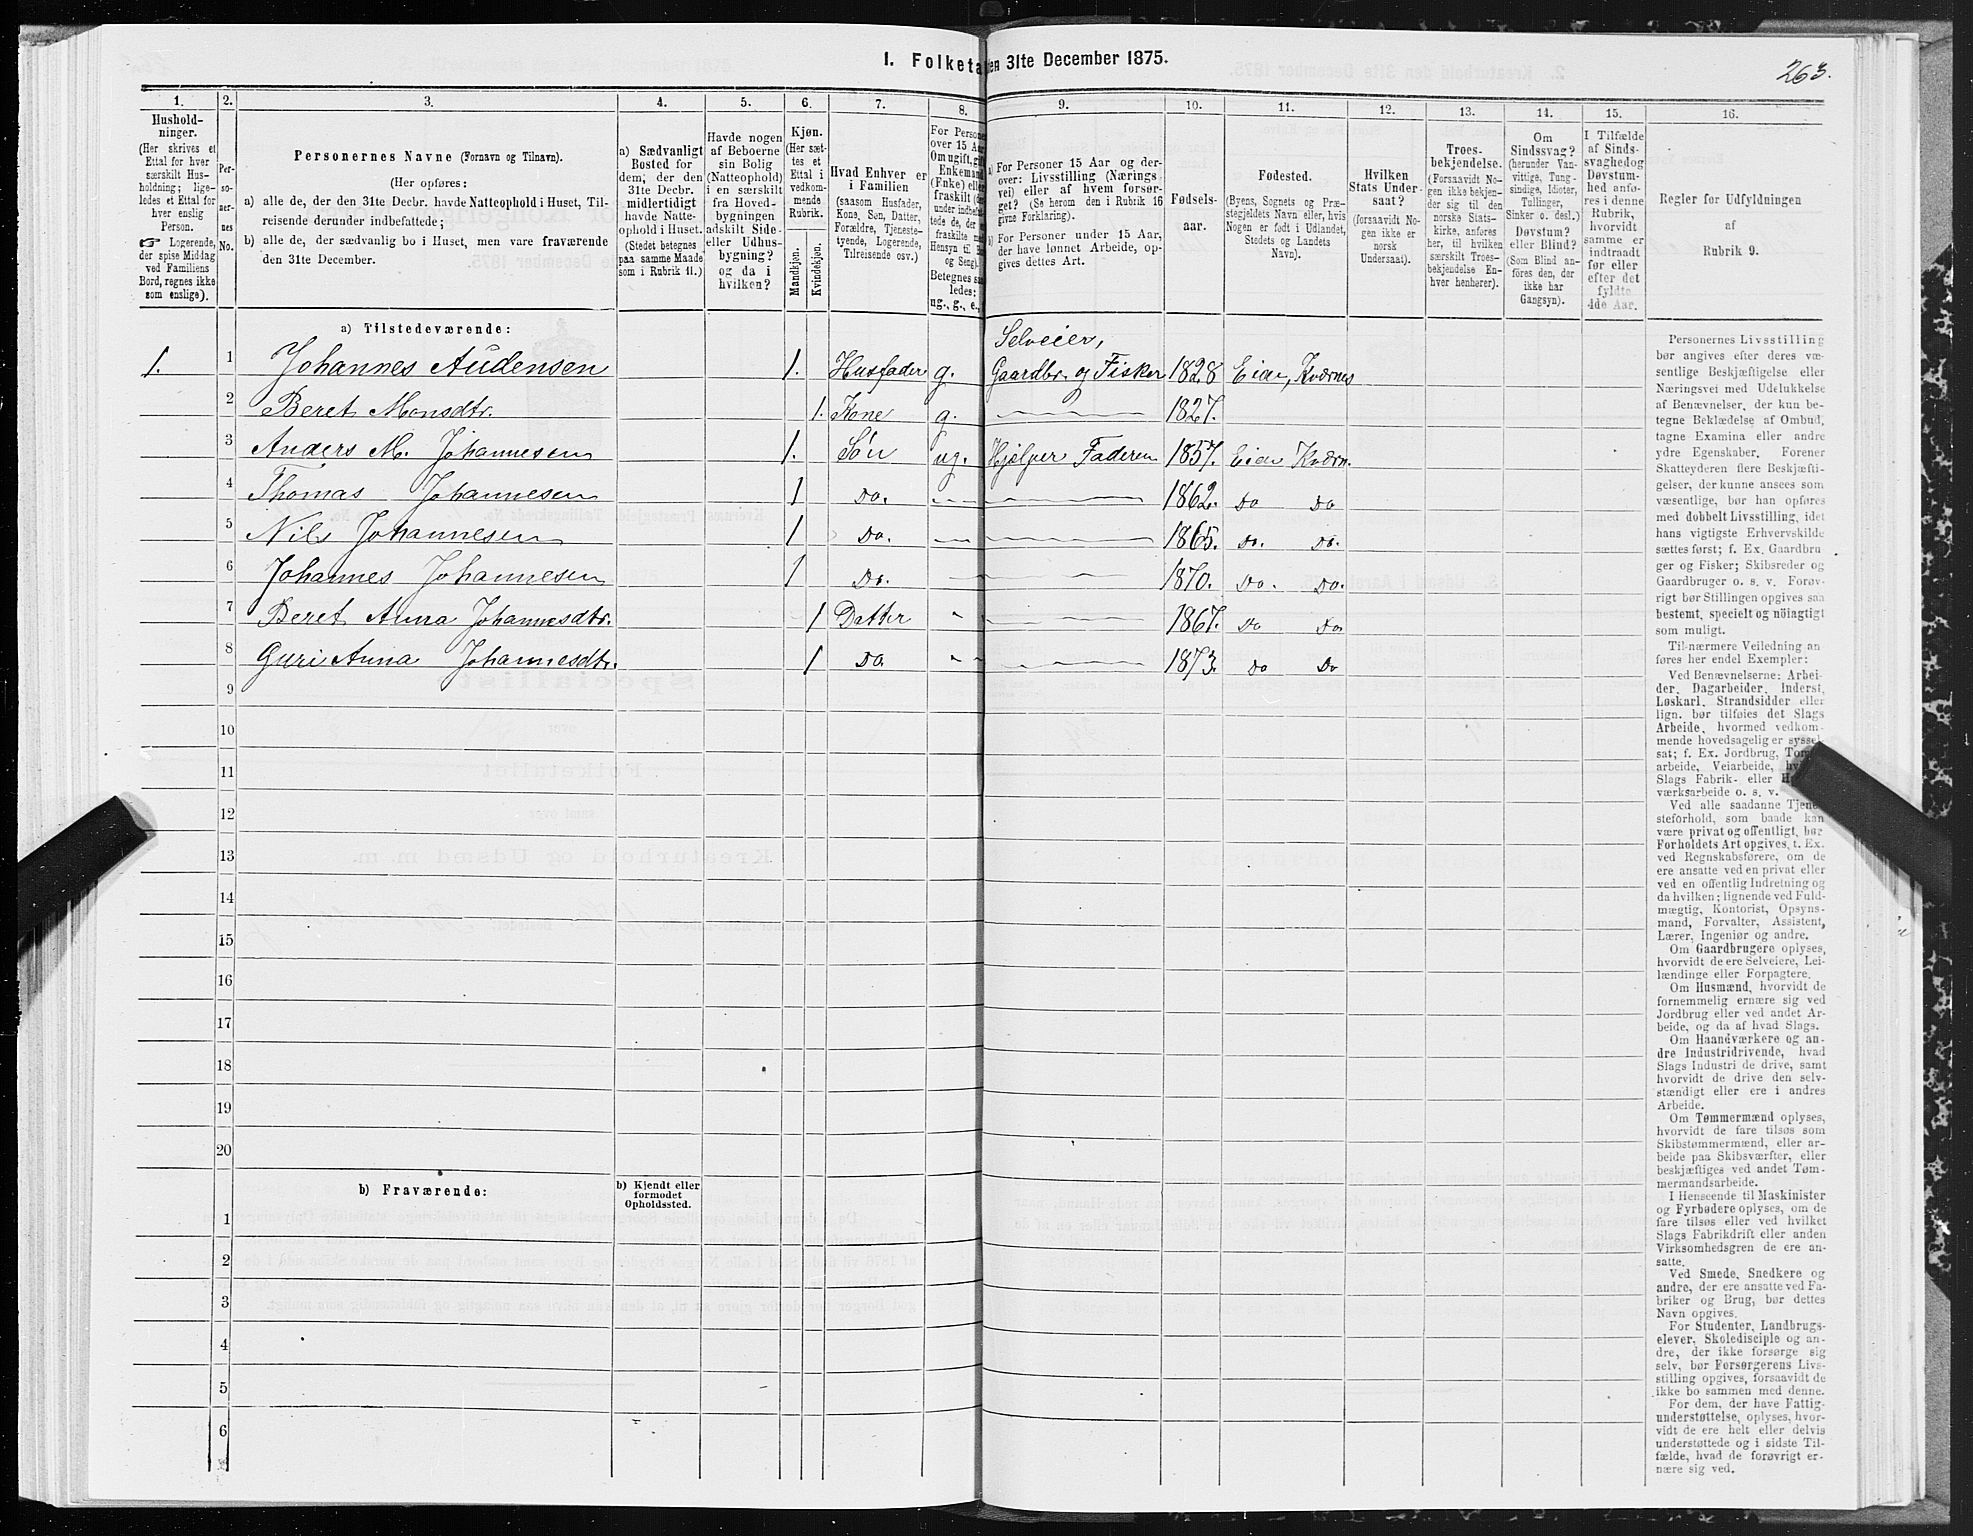 1. Folketal den 31te December 1875.
263.
1. 2. 3. 4. 5. 6. 7. 8. 9. 10. 11. 12. 13. 14. 15. 16.
Husholdninger.
(Her skrives et
Ettal for hver
særskilt Husholdning;
ligeledes et Ettal for
hver enslig
Person.
☞ Logerende,
der spise Middag
ved Familiens
Bord, regnes ikke
som enslige).
Personernes No.
Personernes Navne (Fornavn og Tilnavn).
(Her opføres:
a) alle de, der den 31te Decbr. havde Natteophold i Huset, Tilreisende derunder indbefattede;
b) alle de, der sædvanlig bo i Huset, men vare fraværende
den 31te December.
a) Sædvanligt
Bosted for
dem, der den
31te Decbr.
midlertidigt
havde Natteophold i Huset.
(Stedet betegnes
paa samme Maade
som i Rubrik 11.)
Havde nogen
af Beboerne
sin Bolig
(Natteophold)
i en særskilt
fra Hovedbygningen
adskilt Side- eller Udhusbygning?
og da i
hvilken?
Kjøn.
(Her sættes et
Ettal i
vedkommende
Rubrik.
Mandkjøn.
Kvindekjøn.
Hvad Enhver er
i Familien
(saasom Husfader,
Kone, Søn, Datter,
Forældre, Tjenestetyende, Logerende,
Tilreisende osv.)
For Personer
over 15 Aar
Om ugift, gift,
Enkemand
(Enke) eller
fraskilt
Betegnes saaledes:
ug., g., e.,
a) For Personer 15 Aar og derover: Livsstilling (Næringsvei) eller af hvem forsørget? (Se herom den i Rubrik 16
givne Forklaring).
b) For Personer under 15 Aar,
der have lønnet Arbeide, opgives dettes Art.
Fødselsaar.
Fødested.
(Byens, Sognets og Præstegjeldets Navn eller, hvis
Nogen er født i Udlandet,
Stedets og Landets
Navn).
Hvilken
Stats Undersaat?
(forsaavidt Nogen ikke er
norsk
Undersaat).
Troesbekjendelse.
(Forsaavidt Nogen ikke bekjender sig til den
norske Statskirke, anføres
her, til hvilken
særskilt Troesbekjendelse Enhver henhører).
Om
Sindssvag?
(herunder Vanvittige, Tungsindige, Idioter,
Tullinger,
Sinker o. desl.)
Døvstum?
eller Blind?
(Som Blind anføres den, der
ikke har
Gangsyn).
I Tilfælde
af Sindssvaghed og
Døvstumhed anføres i denne
Rubrik,
hvorvidt
samme er
indtraadt
før eller
efter det
fyldte
4de Aar.
Regler for Udfyldningen
af
Rubrik 9.
a) Tilstedeværende:
Selveier,
1. 1 Johannes Audensen 1. Husfader g. Gaardbr. og Fisker 1828 Eide, Kværnes
2 Beret Monsdtr. 1. Kone g. 1827.
3 Anders M. Johannesen 1. Søn ug. Hjælper Faderen 1857. Eide Kværn.
4 Thomas Johannesen 1 Do. 1862. Do Do
5 Nils Johannesen 1 Do. 1865. Do. Do.
6 Johannes Johannesen 1 Do. 1870. Do. Do.
7 Beret Anna Johannesdtr. 1 Datter " 1867. Do Do
8 Guri Anna Johannesdtr. 1 Do. " 1873. Do Do
9
10
11
12
13
14
15
16
17
18
19
20
b) Fraværende:
b) Kjendt eller
formodet
Opholdssted.
1
2
3
4
5
6
Personernes Livsstilling
bør angives efter deres væsentlige Beskjæftigelse eller
Næringsvei med Udelukkelse
af Benævnelser, der kun betegne Beklædelse af Ombud,
tagne Examina eller andre
ydre Egenskaber. Forener
Skatteyderen flere Beskjæftigelser, der kunne ansees som
væsentlige, bør han opføres
med dobbelt Livsstilling, idet
hans vigtigste Erhvervskilde
sættes først; f. Ex. Gaardbruger og Fisker; Skibsreder og
Gaardbruger o. s. v. Forøvrigt bør Stillingen opgives saa
bestemt, specielt og nöiagtigt
som muligt.
Til nærmere Veiledning anføres her endel Exempler:
Ved Benævnelserne: Arbeider, Dagarbeider, Inderst,
Løskarl, Strandsidder eller
lign. bør tilføies det Slags
Arbeide, hvormed vedkommende hovedsagelig er sysselsat; f. Ex. Jordbrug, Tomtearbeide, Veiarbeide, hvad
Slags Fabrik- eller Haandværksarbeide o. s. v.
Ved alle saadanne Tjenesteforhold, som baade kan
være privat og offentligt, bør
Forholdets Art opgives, t. Ex.
ved Regnskabsførere, om de
ere ansatte ved en privat eller
ved en offentlig Indretning og
da hvilken; lignende ved Fuldmægtig, Kontorist, Opsynsmand, Forvalter, Assistent,
Lærer, Ingeniør og andre.
Om Gaardbrugere oplyses,
hvorvidt de ere Selveiere, Leilændinge eller Forpagtere.
Om Husmænd, hvorvidt de
fornemmelig ernære sig ved
Jordbrug eller ved andet Arbeide, og da af hvad Slags.
Om Haandværkere og andre Industridrivende, hvad
Slags Industri de drive, samt
hvorvidt de drive den selvstændigt eller ere i andres
Arbeide.
Om Tømmermænd oplyses,
hvorvidt de fare tilsøs som
Skibstømmermænd, eller arbeide paa Skibsværfter, eller
beskjæftiges ved andet Tømmermandsarbeide.
I Henseende til Maskinister
og Fyrbødere oplyses, om de
fare tilsøs eller ved hvilket
Slags Fabrikdrift eller anden
Virksomhedsgren de ere ansatte.
Ved Smede, Snedkere og
andre, der ere ansatte ved Fabriker og Brug, bør dettes
Navn opgives.
For Studenter, Landbrugselever, Skoledisciple og andre, der ikke forsørge sig
selv, bør Forsørgerens Livsstilling opgives, forsaavidt de
ikke bo sammen med denne.
For dem, der have Fattigunderstøttelse, oplyses, hvorvidt de ere helt eller delvis
understøttede og i sidste Tilfælde, hvad de forøvrigt ernære sig ved.